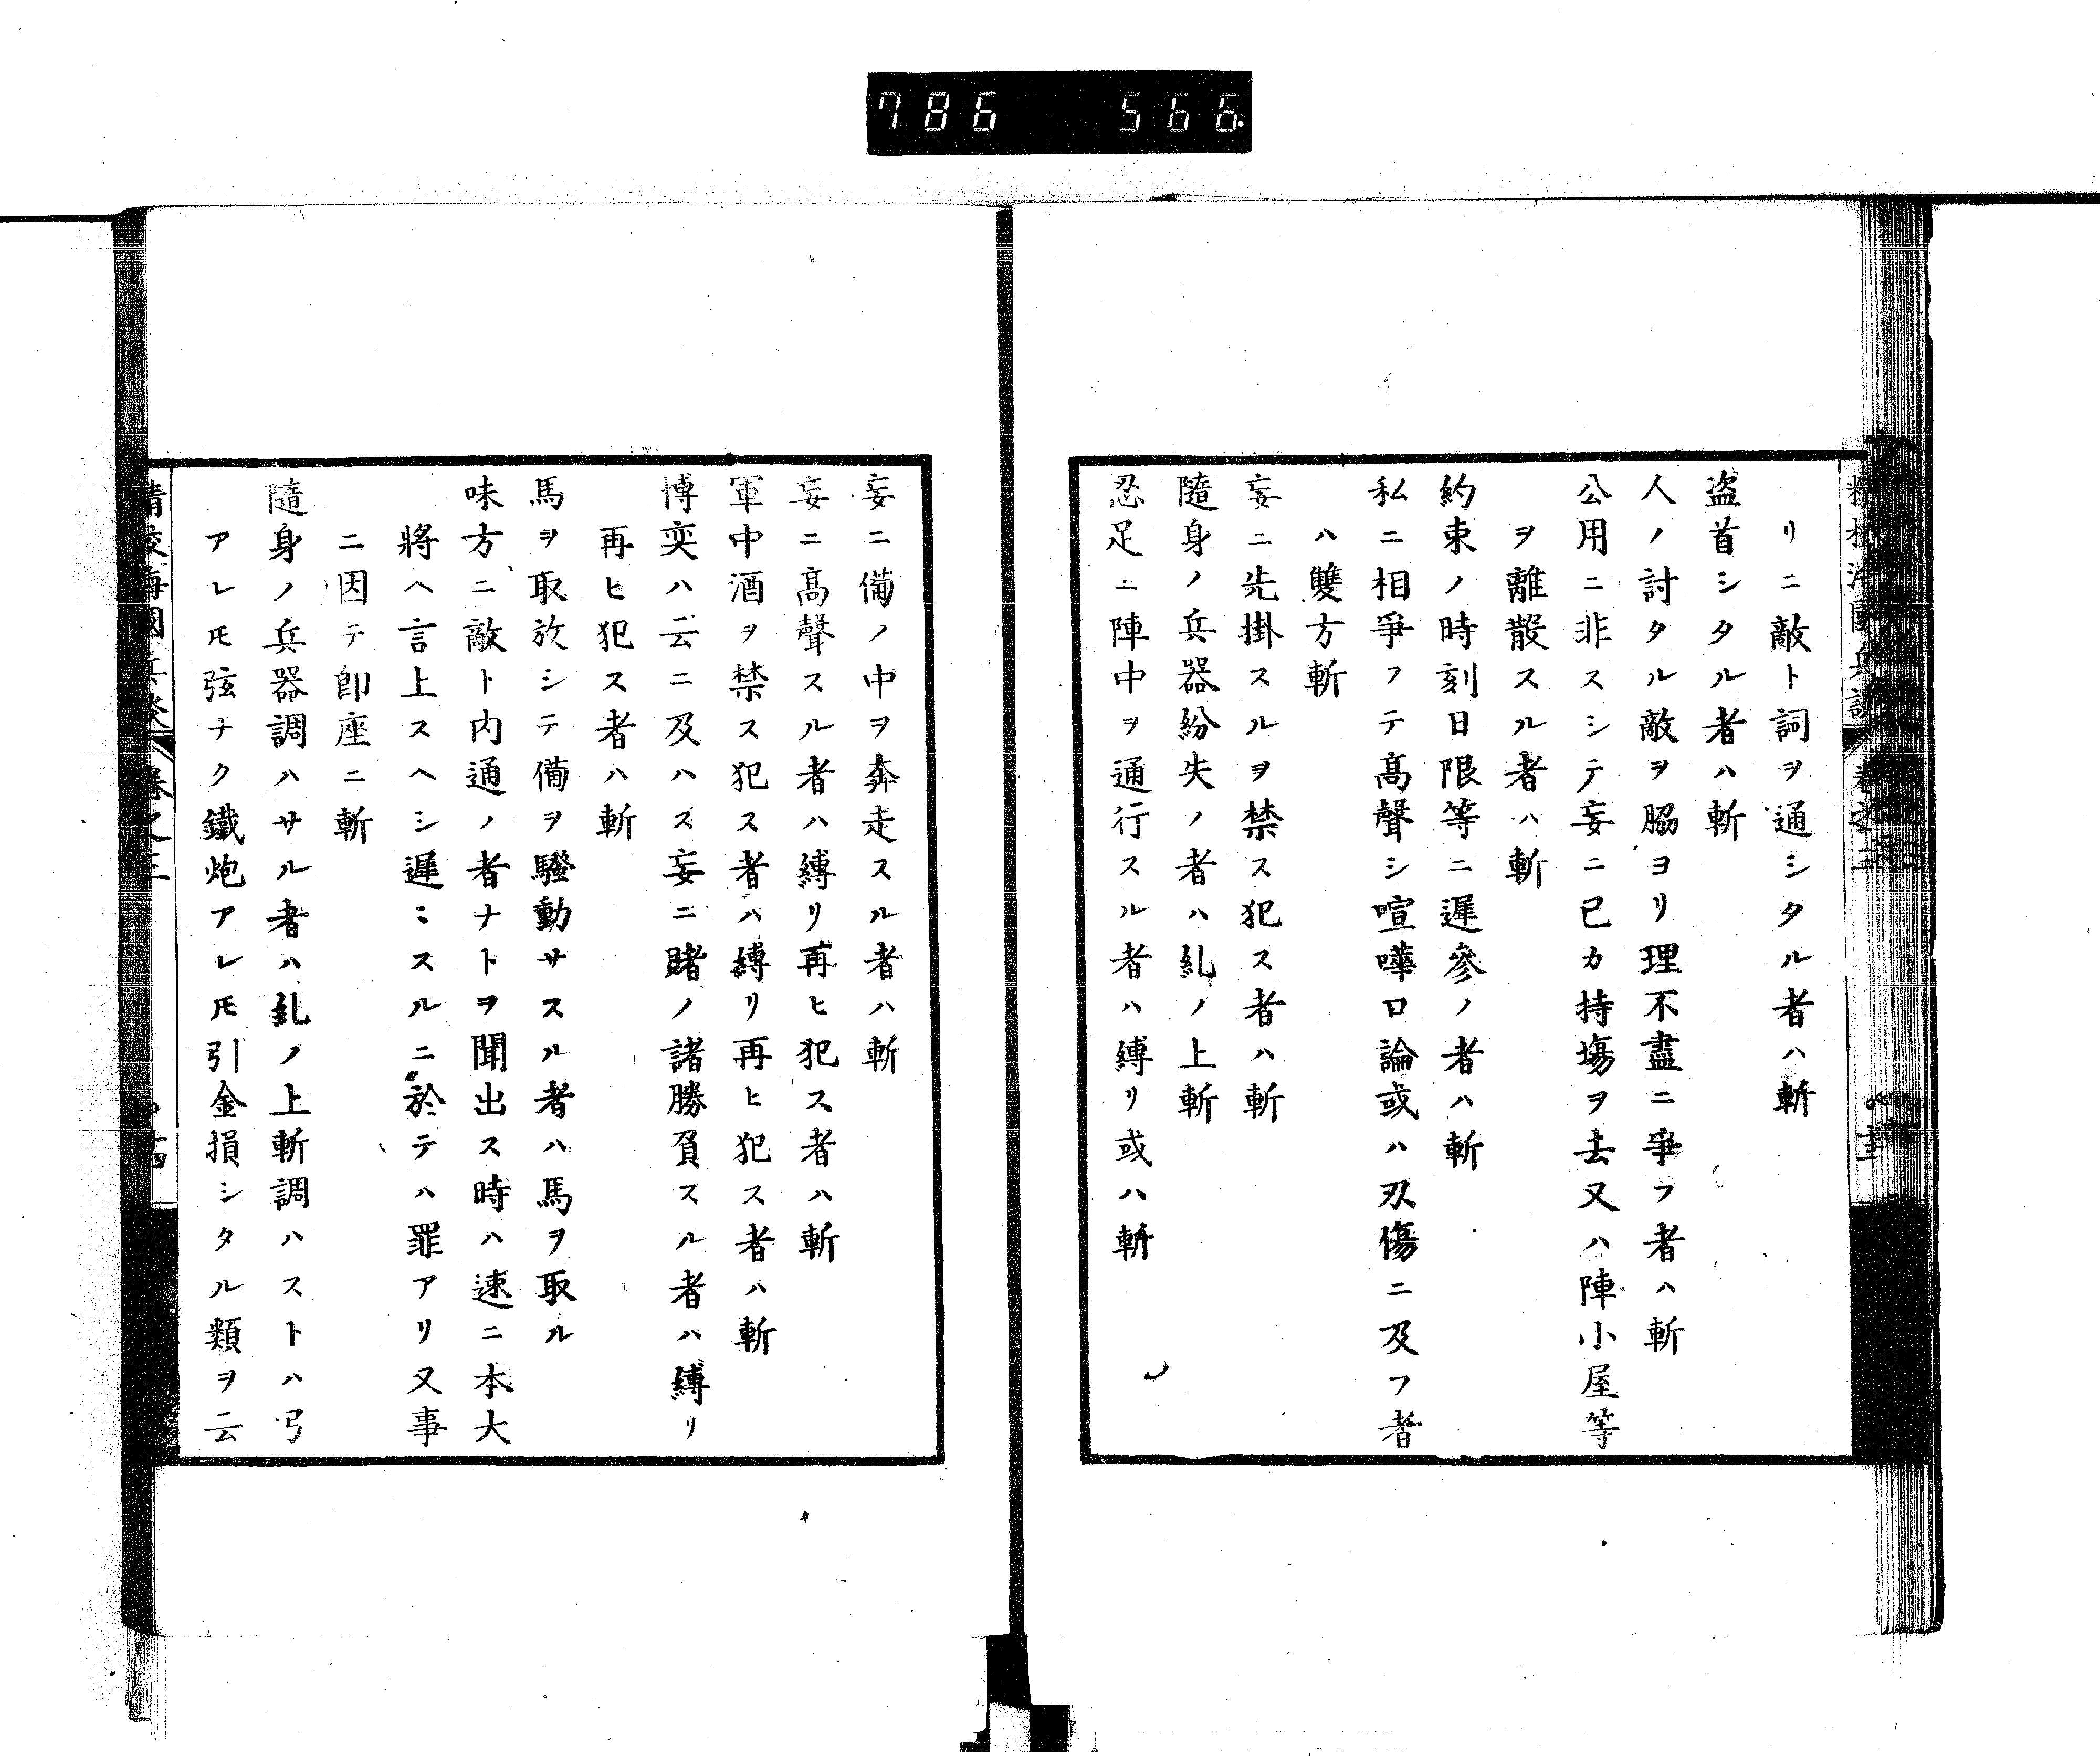 786 566
リニ敵ト詞ヲ通シタル者ハ斬
盗首シタル者ハ斬
人ノ討タル敵ヲ脇ヨリ理不盡ニ爭フ者ハ斬
公用ニ非スシテ妄ニ已カ持塲ヲ去又ハ陣小屋等
ヲ離散スル者ハ斬
約束ノ時刻日限等ニ遲參ノ者ハ斬
私ニ相爭フテ髙聲シ喧嘩口論或ハ刄傷ニ及フ者
ハ雙方斬
妄ニ先掛スルヲ禁ス犯ス者ハ斬
隨身ノ兵器紛失ノ者ハ糺ノ上斬
忍足ニ陣中ヲ通行スル者ハ縛リ或ハ斬
妄ニ備ノ中ヲ奔走スル者ハ斬
妄ニ髙聲スル者ハ縛リ再ヒ犯ス者ハ斬
軍中酒ヲ禁ス犯ス者ハ縛リ再ヒ犯ス者ハ斬
博奕ハ云ニ及ハス妄ニ賭ノ諸勝負スル者ハ縛リ
再ヒ犯ス者ハ斬
馬ヲ取放シテ備ヲ騷動サスル者ハ馬ヲ取ル
味方ニ敵ト内通ノ者ナトヲ聞出ス時ハ速ニ本大
將ヘ言上スヘシ遲ミスルニ於テハ罪アリ又事
ニ因テ卽座ニ斬
隨身ノ兵器調ハサル者ハ糺ノ上斬調ハストハ弓
アレ𪜈弦ナク鐵炮アレ𪜈引金損シタル類ヲ云
精校海國兵談 卷之三